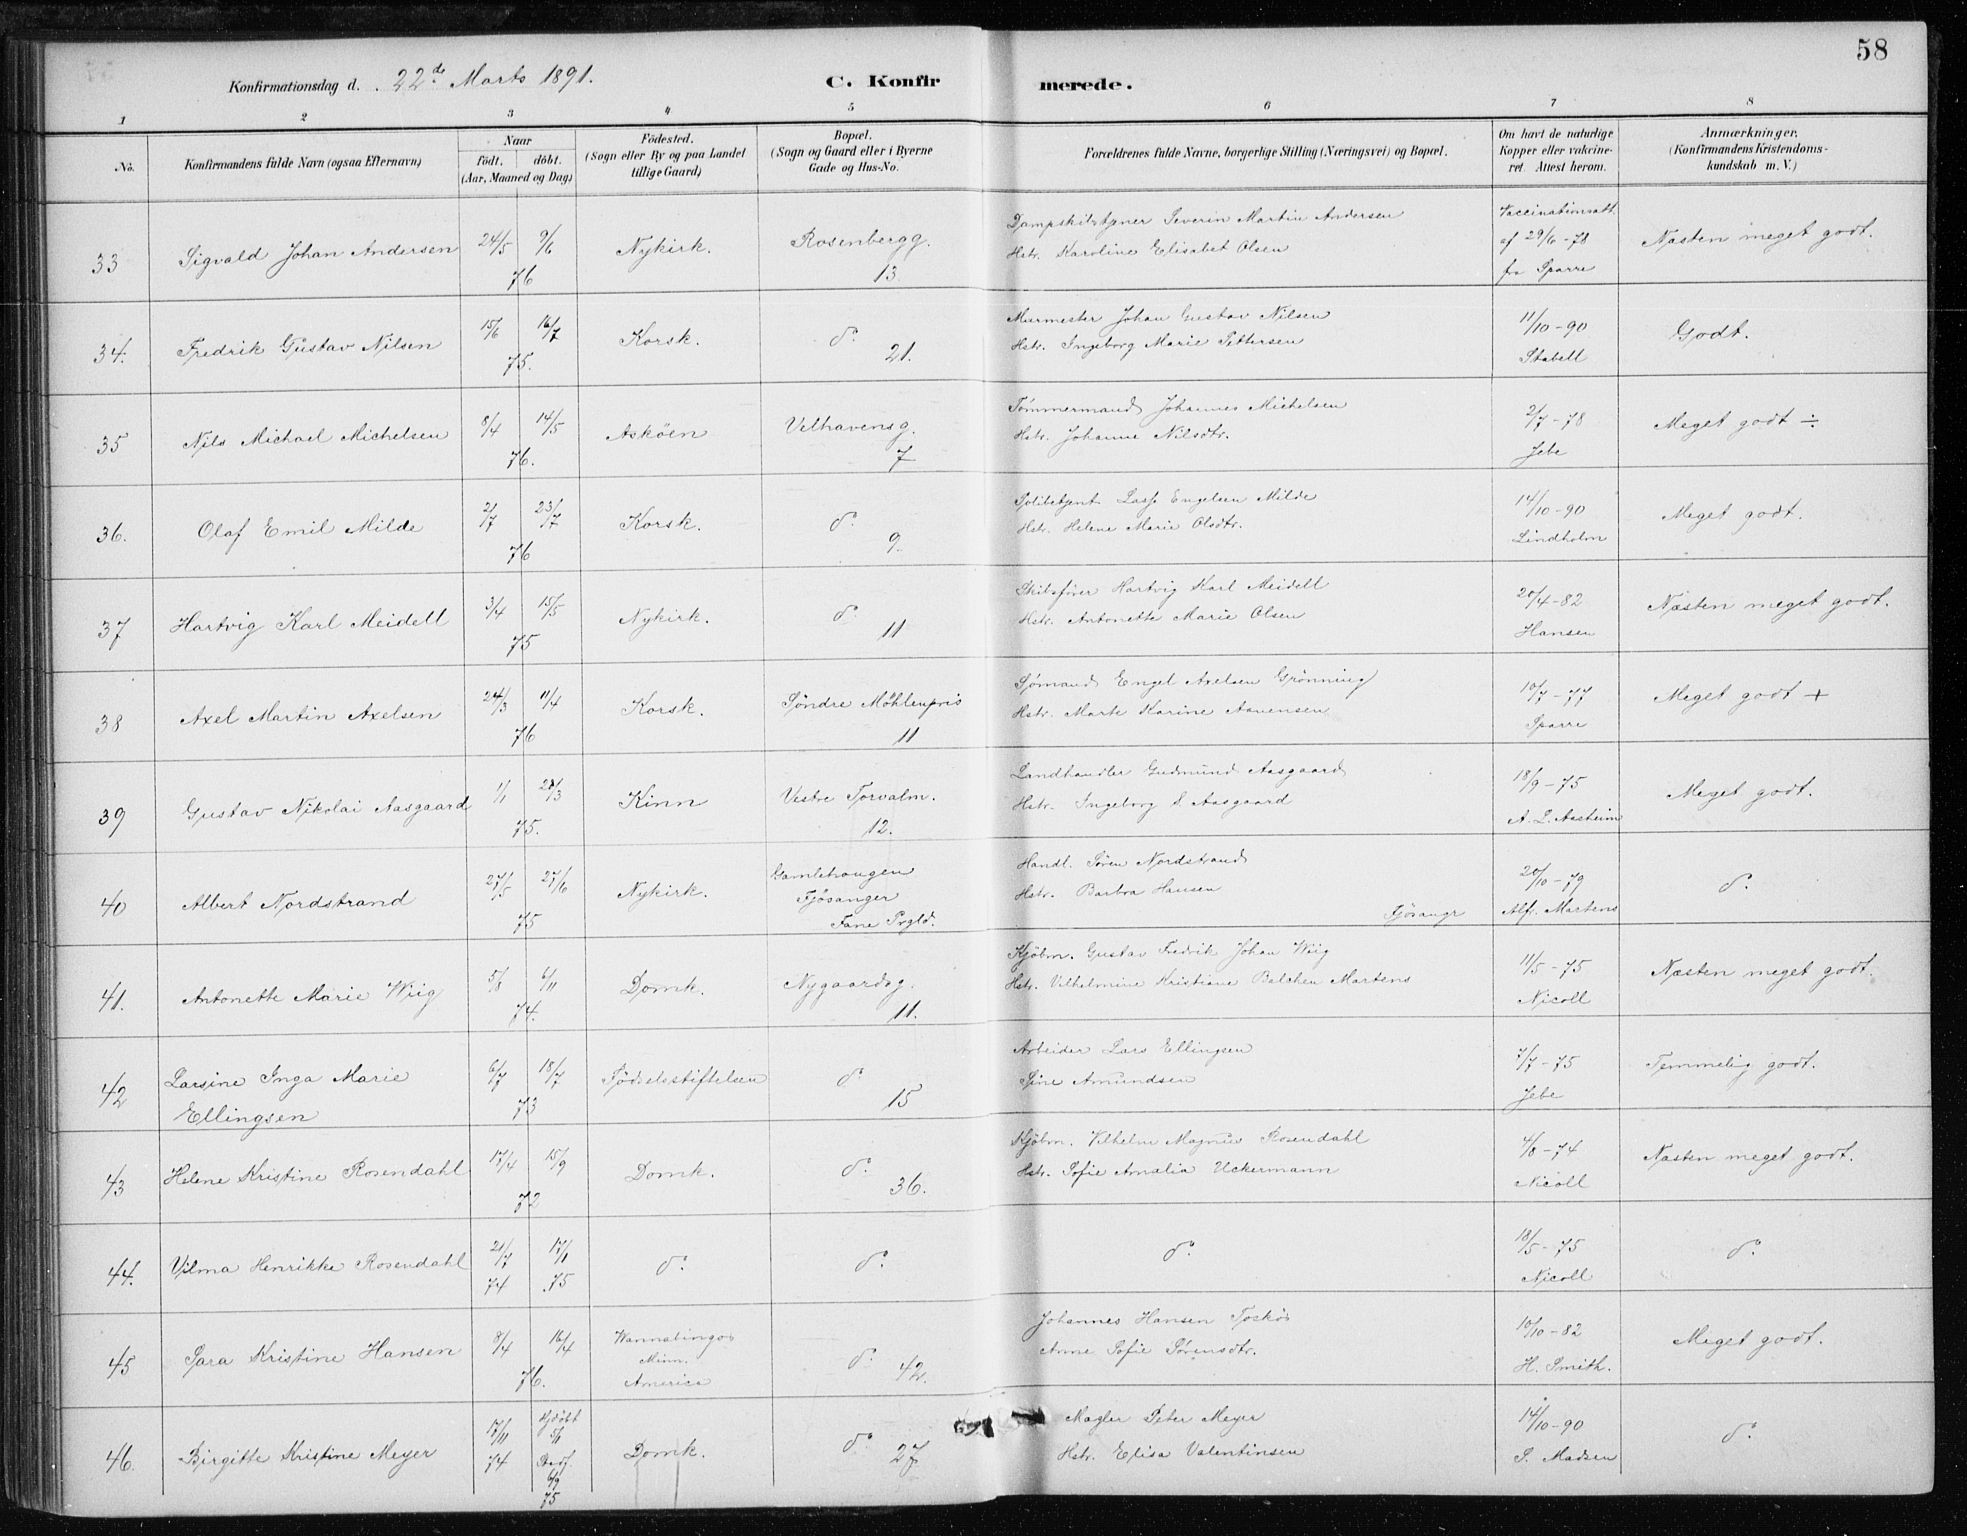 58
Konfirmationsdag d. 22de Marts 1891.
C. Konfirmerede.
1 2 3 4 5 6 7 8
No.
Konfirmandens fulde Navn (ogsaa Efternavn)
Naar
født. døbt.
(Aar, Maaned og Dag)
Födested.
(Sogn eller By og paa Landet
tillige Gaard)
Bopæl.
(Sogn og Gaard eller i Byerne
Gade og Hus-No.
Forældrenes fulde Navne, borgerlige Stilling (Næringsvei) og Bopæl.
Om havt de naturlige
Kopper eller vakcine-
ret. Attest herom.
Anmærkninger.
(Konfirmandens Kristendoms-
kundskab m. V.)
33 Sigvald Johan Andersen 24/5 9/6 76 Nykirk. Rosenbergg. 13.
Dampskibstjener Severin Martin Andersen
Hstr. Karoline Elisabet Olsen
Vaccinationsatt.
af 29/6 - 78
fra Sparre
Næsten meget godt.
34. Fredrik Gustav Nilsen 15/6 16/7 75. Korsk. do 21.
Murmester Johan Gustav Nilsen
Hstr. Ingeborg Marie Pettersen
11/10 - 90
Stabell
Godt.
35 Nils Michael Michelsen 8/4 14/5 76. Askøen Velhavensg. 7
Tømmermand Johannes Michelsen
Hstr. Johanne Nilsdtr.
2/7 - 78
Jebe
Meget godt ÷
36. Olaf Emil Milde 2/7 23/7 76 Korsk. do 9.
Politibetjent Lasse Engelsen Milde
Hstr. Helene Marie Olsdtr.
14/10 - 90
Lindholm
Meget godt.
37 Hartvig Karl Meidell 3/4 15/5 75 Nykirk. do 11
Skibsfører Hartvig Karl Meidell
Hstr. Antonette Marie Olsen
20/4 - 82
Hansen
Næsten meget godt.
38 Axel Martin Axelsen 24/3 11/4 76 Korsk. Søndre Möhlenpris 11
Sømand Engel Axelsen Grönning
Hstr. Marte Karine Aavensen
10/7 - 77
Sparre
Meget godt +
39 Gustav Nikolai Aasgaard 1/1 28/3 75. Kinn Vestre Torvalm. 12.
Landhandler Gudmund Aasgaard
Hstr. Ingeborg S Aasgaard
18/9 - 75
A. L. Aasheim
Meget godt.
40 Albert Nordstrand 27/5 27/6 75 Nykirk. Gamlehaugen
Fjösanger
Fane Prgld.
Handl. Sören Nordstrand
Hstr. Barbra Hansen
Fjösangr
20/10 - 79
Alfr. Martens
do
41. Antonette Marie Wiig 5/8 6/11 74. Domk. Nygaardsg. 11.
Kjöbm. Gustav Fredrik Johan Wiig
Hstr. Vilhelmine Kristiane Balchen Martens
11/5 - 75
Nicoll
Næsten meget godt.
42 Larsine Inga Marie
Ellingsen 6/7 18/7 73 Födselsstiftelsen do 15
Arbeider Lars Ellingsen
Sine Amundsen
7/7 - 75
Jebe
Temmelig godt.
43 Helene Kristine Rosendahl 17/4 15/9 72 Domk. do 36.
Kjöbm. Vilhelm Magnus Rosendahl
Hstr. Sofie Amalia Uckermann
4/8 - 74
Nicoll
Næsten meget godt.
44. Vilma Henrikke Rosendahl 21/7 74 17/1 75 do do do
18/5 - 75
Nicoll
do
45 Sara Kristine Hansen 8/4 16/4 76. Wannalingos
Minn.
America do 42.
Johannes Hansen Toskös
Anne Sofie Sörensdtr.
10/10 - 82
H. Smith.
Meget godt.
46. Birgitte Kristine Meyer 17/11 74 Hjdöbt 5/1 Bedf. 6/9 75 Domk. do 27
Mægler Peter Meyer
Hstr. Elisa Valentinsen
14/10 - 90
S. Madsen
do